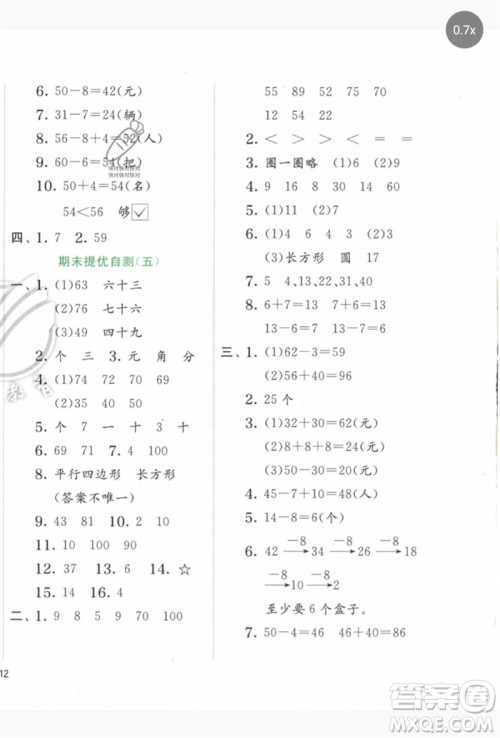 0.7x
6. 50-8=42(元)
7. 31-7=24(辆)
8. 56-8+4=52(人)
9. 60-6=54(把)
10. 50+4=54(名)
54<56 够 ✓
四、1. 7 2. 59
期末提优自测(五)
一、1. (1)63 六十三
(2)76 七十六
(3)49 四十九
2. 个 三 3. 元 角 分
4. (1)74 72 70 69
(2)35 40
5. 7 十 1 十 3 十
6. 69 71 7. 71 100
8. 平行四边形 长方形
(答案不唯一)
9. 43 81 10. 2 20
11. 60 90 100
12. 37 13. 26 14. ☆
15. 16 0
二、1. 9 8 5 9 70
12
55 89 52 75 37
55
2. < > > < = =
3. 圈一圈略 (1)6 (2)6
4. 9 16 8 30
5. (1)11 (2)9
6. (1)2 (2)3
(3)长方形 圆 17
7. 5 4、13、22、31
8. 6+7=13 7+6=13
13-6=7 13-7=6
三、1. (1)62-3=59
(2)50-10=40
2. 25个
3. (1)32+30=62(元)
(2)8+8+8=24(元)
(3)50-30=20(元)
4. 45-7=38(元)
5. 9+6=15(个)
6. 42 -8→ 34 -8→ 26 -8→
18 -8→ 10 -8→ 2
至少要6个盒子。
7. 50-4=46 46+40=86
答案圈
MXQE.COM